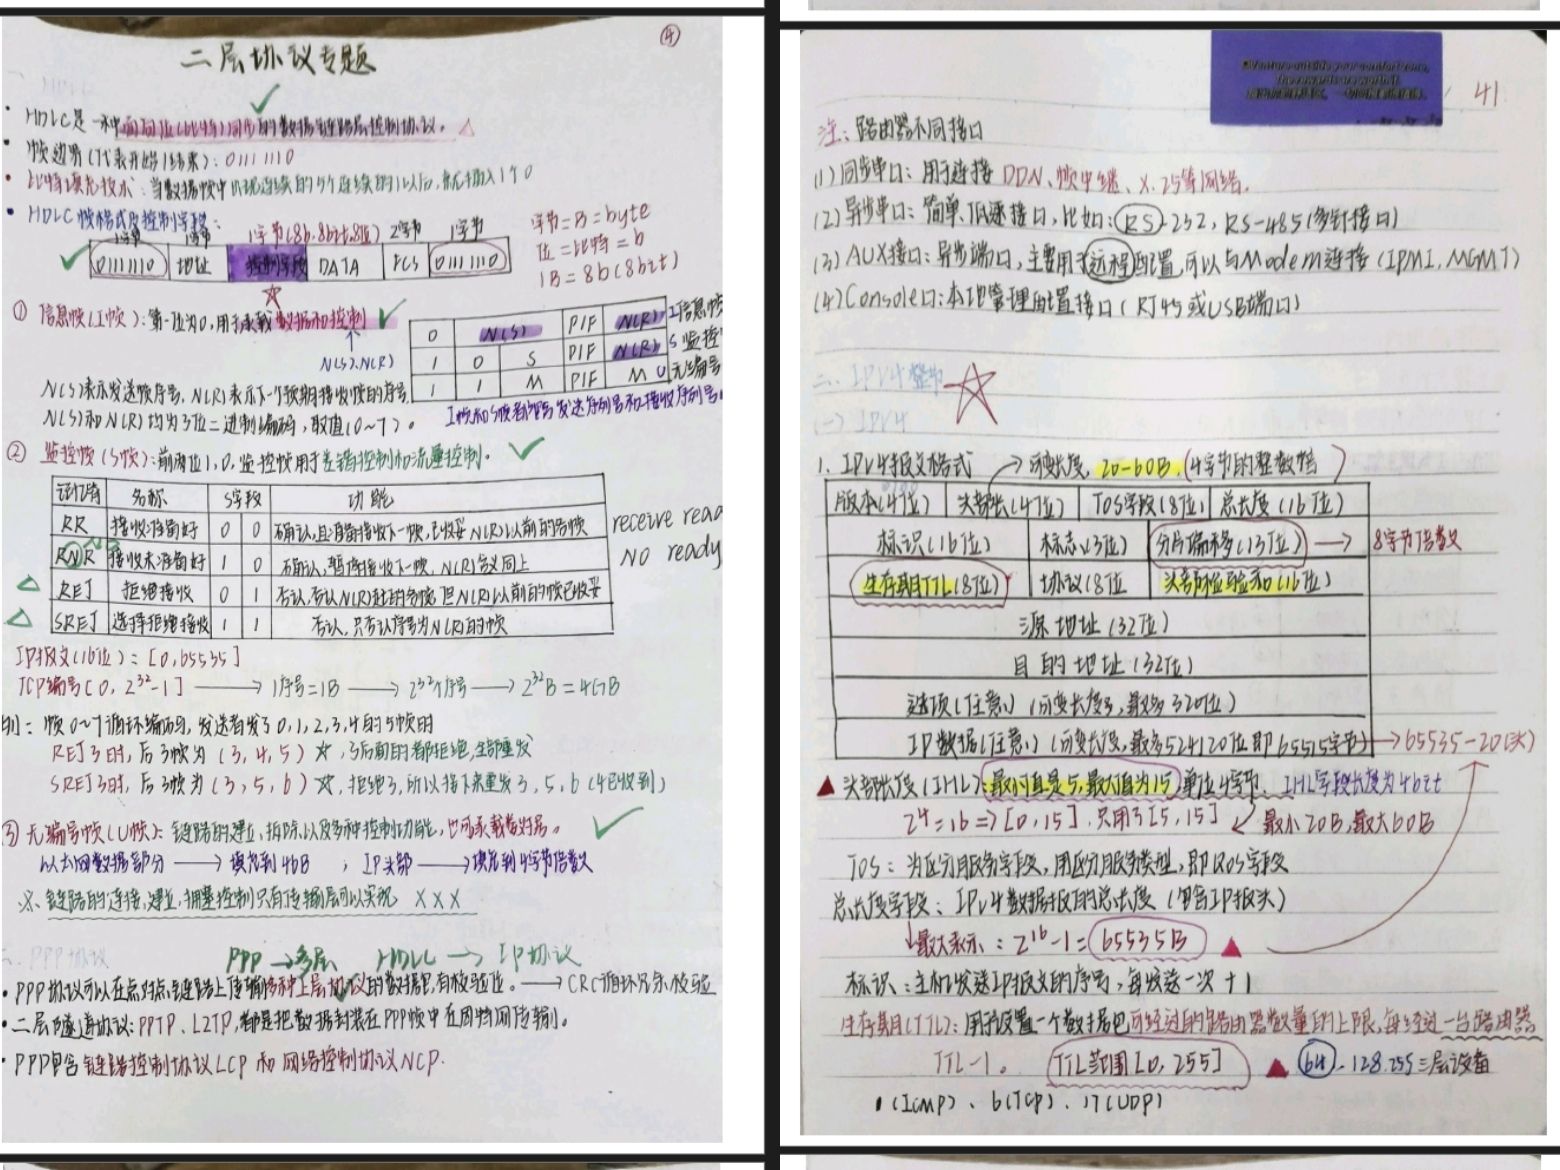 ④
二层协议专题
HDLC是一种面向位(比特)同步的数据链路层控制协议。
帧边界(代表开始/结束): 01111110
比特填充技术: 当数据帧中出现连续的5个连续的1以后,就插入1个0
HDLC帧格式及控制字段:
1字节 1字节 1字节(8b.8bit.8位) 2字节 1字节
01111110 地址 控制字段 DATA FCS 01111110
字节=B=byte
位=比特=b
1B=8b(8bit)
① 信息帧(I帧): 第一位为0,用于承载数据和控制
N(S).N(R)
0 N(S) P/F N(R) I信息帧
1 0 S P/F N(R) S监控
1 1 M P/F M U无编号
N(S)表示发送帧序号, N(R)表示下一个预期接收帧的序号
N(S)和N(R)均为3位二进制编码, 取值(0~7)。
② 监控帧(S帧): 前两位1,0,监控帧用于差错控制和流量控制。
记忆符 名称 S字段 功能
RR 接收准备好 0 0 确认,且准备接收下一帧,已收妥N(R)以前的各帧
RNR 接收未准备好 1 0 确认,暂停接收下一帧, N(R)含义同上
REJ 拒绝接收 0 1 否认,否认N(R)起的各帧,但N(R)以前的帧已收妥
SREJ 选择拒绝接收 1 1 否认,只否认序号为N(R)的帧
receive read
NO ready
IP报文(16位): [0,65535]
TCP编号[0, 2^32-1] → 1序号=1B → 2^32个序号 → 2^32B=4GB
例: 帧0~7循环编码, 发送者发了0,1,2,3,4的5帧时
REJ3时, 后3帧为 (3,4,5) ☆,3后面的都拒绝,全部重发
SREJ3时, 后3帧为 (3,5,6) ☆,拒绝3,所以接下来重发3,5,6(4已收到)
③ 无编号帧(U帧): 链路的建立,拆除以及多种控制功能, 也可承载数据。
以太网数据部分 → 填充到46B ; IP头部 → 填充到4字节倍数
※. 链路的连接,建立,拥塞控制只有传输层可以实现 X X X
二. PPP协议
PPP→多层 HDLC → IP协议
PPP协议可以在点对点链路上传输多种上层协议的数据包,有校验位。→CRC循环冗余校验
二层隧道协议: PPTP、L2TP, 都是把数据封装在PPP帧中在因特网传输。
PPP包含链路控制协议LCP 和网络控制协议NCP.
41
注: 路由器不同接口
(1)同步串口: 用于连接 DDN、帧中继、X.25等网络.
(2)异步串口: 简单、低速接口, 比如: RS-232, RS-485(多针接口)
(3) AUX接口: 异步端口, 主要用于远程配置, 可以与Modem连接 (IPMI, MGMT)
(4)Console口: 本地管理配置接口 (RJ45或USB端口)
二、IPV4整节
(一) IPV4
1. IPV4报文格式 →可变长度, 20-60B. (4字节的整数倍)
版本(4位) 头部长(4位) TOS字段(8位) 总长度(16位)
标识(16位) 标志(3位) 分片偏移(13位) → 8字节倍数
生存期TTL(8位) 协议(8位 头部校验和(16位)
源地址(32位)
目的地址(32位)
选项(任意) (可变长度, 最多320位)
IP数据(任意) (可变长度,最多524120位即65515字节) →65535-20(头)
▲ 头部长度(IHL): 最小值是5,最大值为15 单位4字节. IHL字段长度为4bit
2^4=16 => [0,15]. 只用了[5,15] 最小20B,最大60B
TOS: 为区分服务字段, 用区分服务类型, 即QOS字段
总长度字段: IPv4数据报的总长度 (包含IP报头)
↓最大表示: 2^16-1=65535B ▲
标识: 主机发送IP报文的序号, 每发送一次 +1
生存期(TTL): 用于设置一个数据包可经过的路由器数量的上限, 每经过一台路由器
TTL-1。 TTL范围[0, 255] ▲ 64 . 128.255 三层设备
1(ICMP)、6(TCP)、17(UDP)